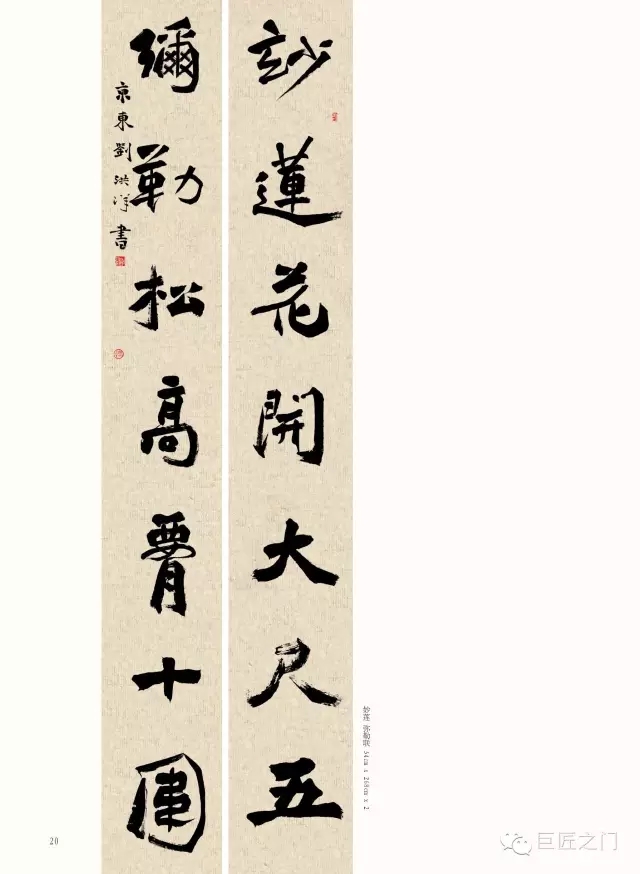 玅蓮花開大尺五
彌勒松高賸十圍
京東劉洪洋書
妙莲 弥勒联 34cm x 268cm x 2
20
巨匠之门